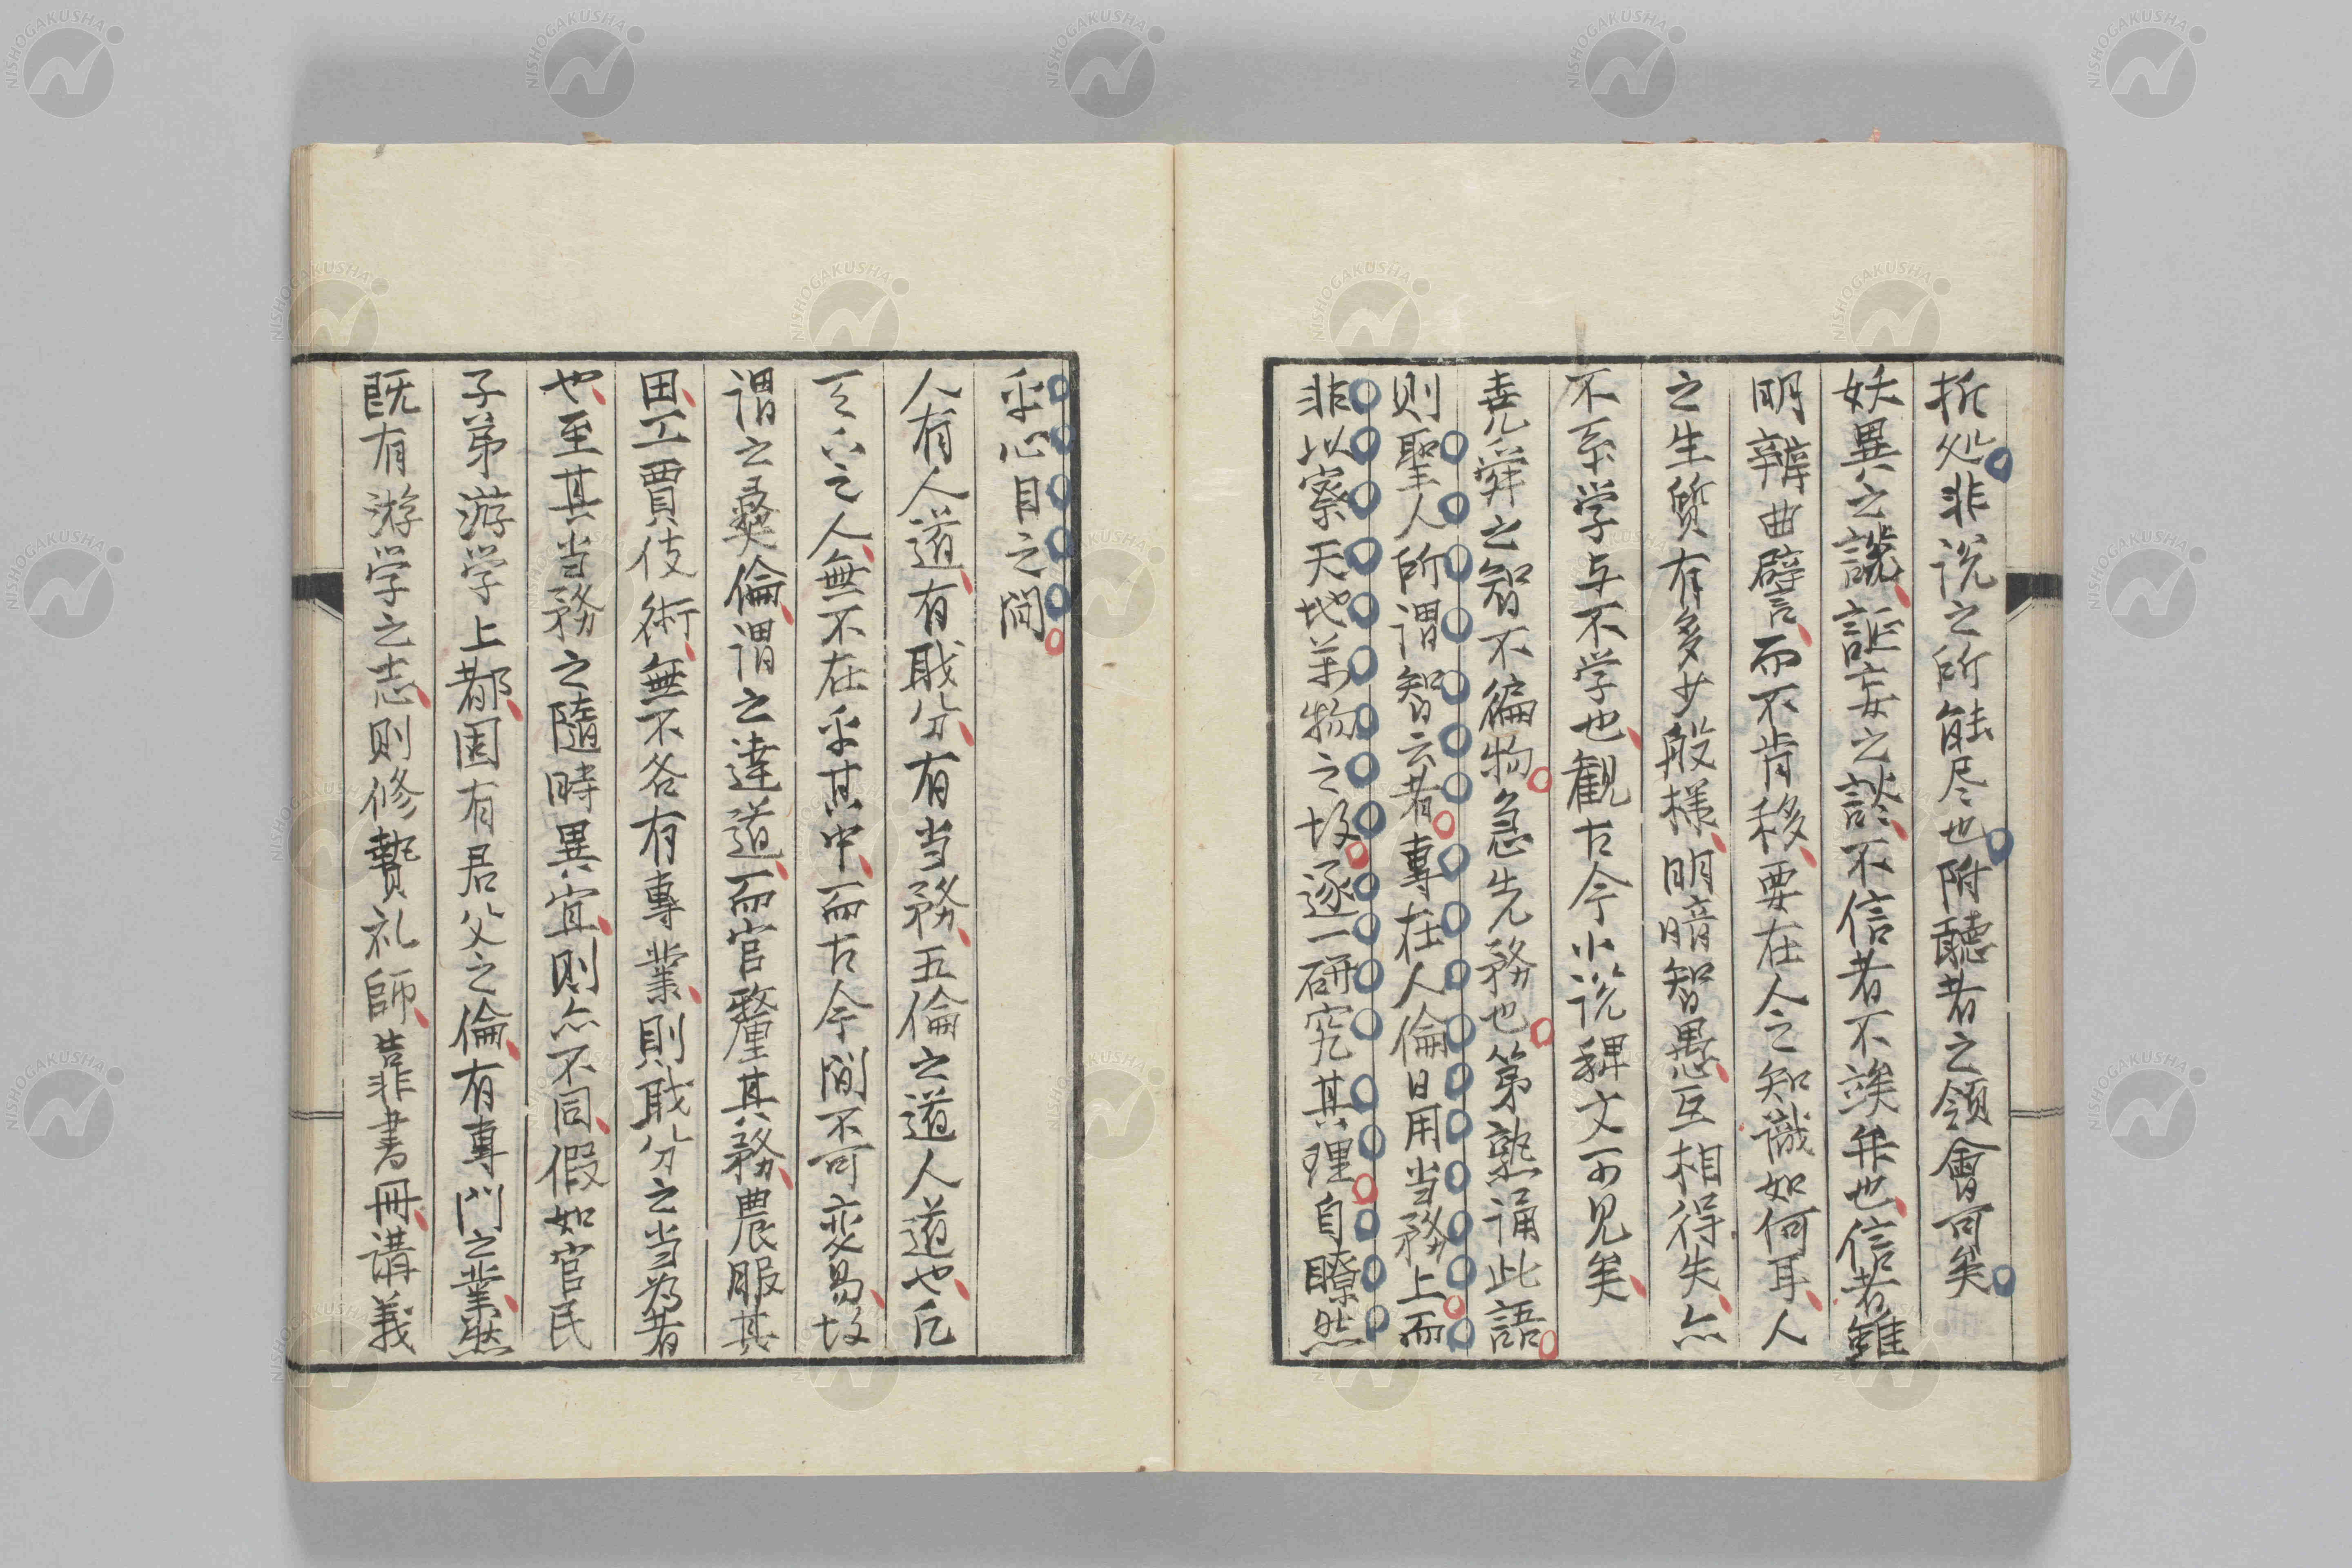 折処非説之所能尽也附聽者之領會可矣
妖異之談誣妄之談不信者不竢弁也信者雖
明辨曲譬而不肯移要在人之知識如何耳人
之生質有多少般様明暗智愚互相得失亦
不系学与不学也観古今小説稗文可見矣
堯舜之智不徧物急先務也第熟誦此語
則聖人所謂智云者專在人倫日用当務上而
非以察天地万物之故逐一研究其理自瞭然
乎心目之間
人有人道有職分有当務五倫之道人道也凡
天下之人無不在乎其中而古今間不可変易故
謂之彜倫謂之達道而官釐其務農服其
田工賈伎術無不各有專業則職分之当為者
也至其当務之隨時異宜則亦不同假如官民
子弟游学上都固有君父之倫有專門之業然
既有游学之志則修贄礼師靠書冊講義
NISHOGAKUSHA